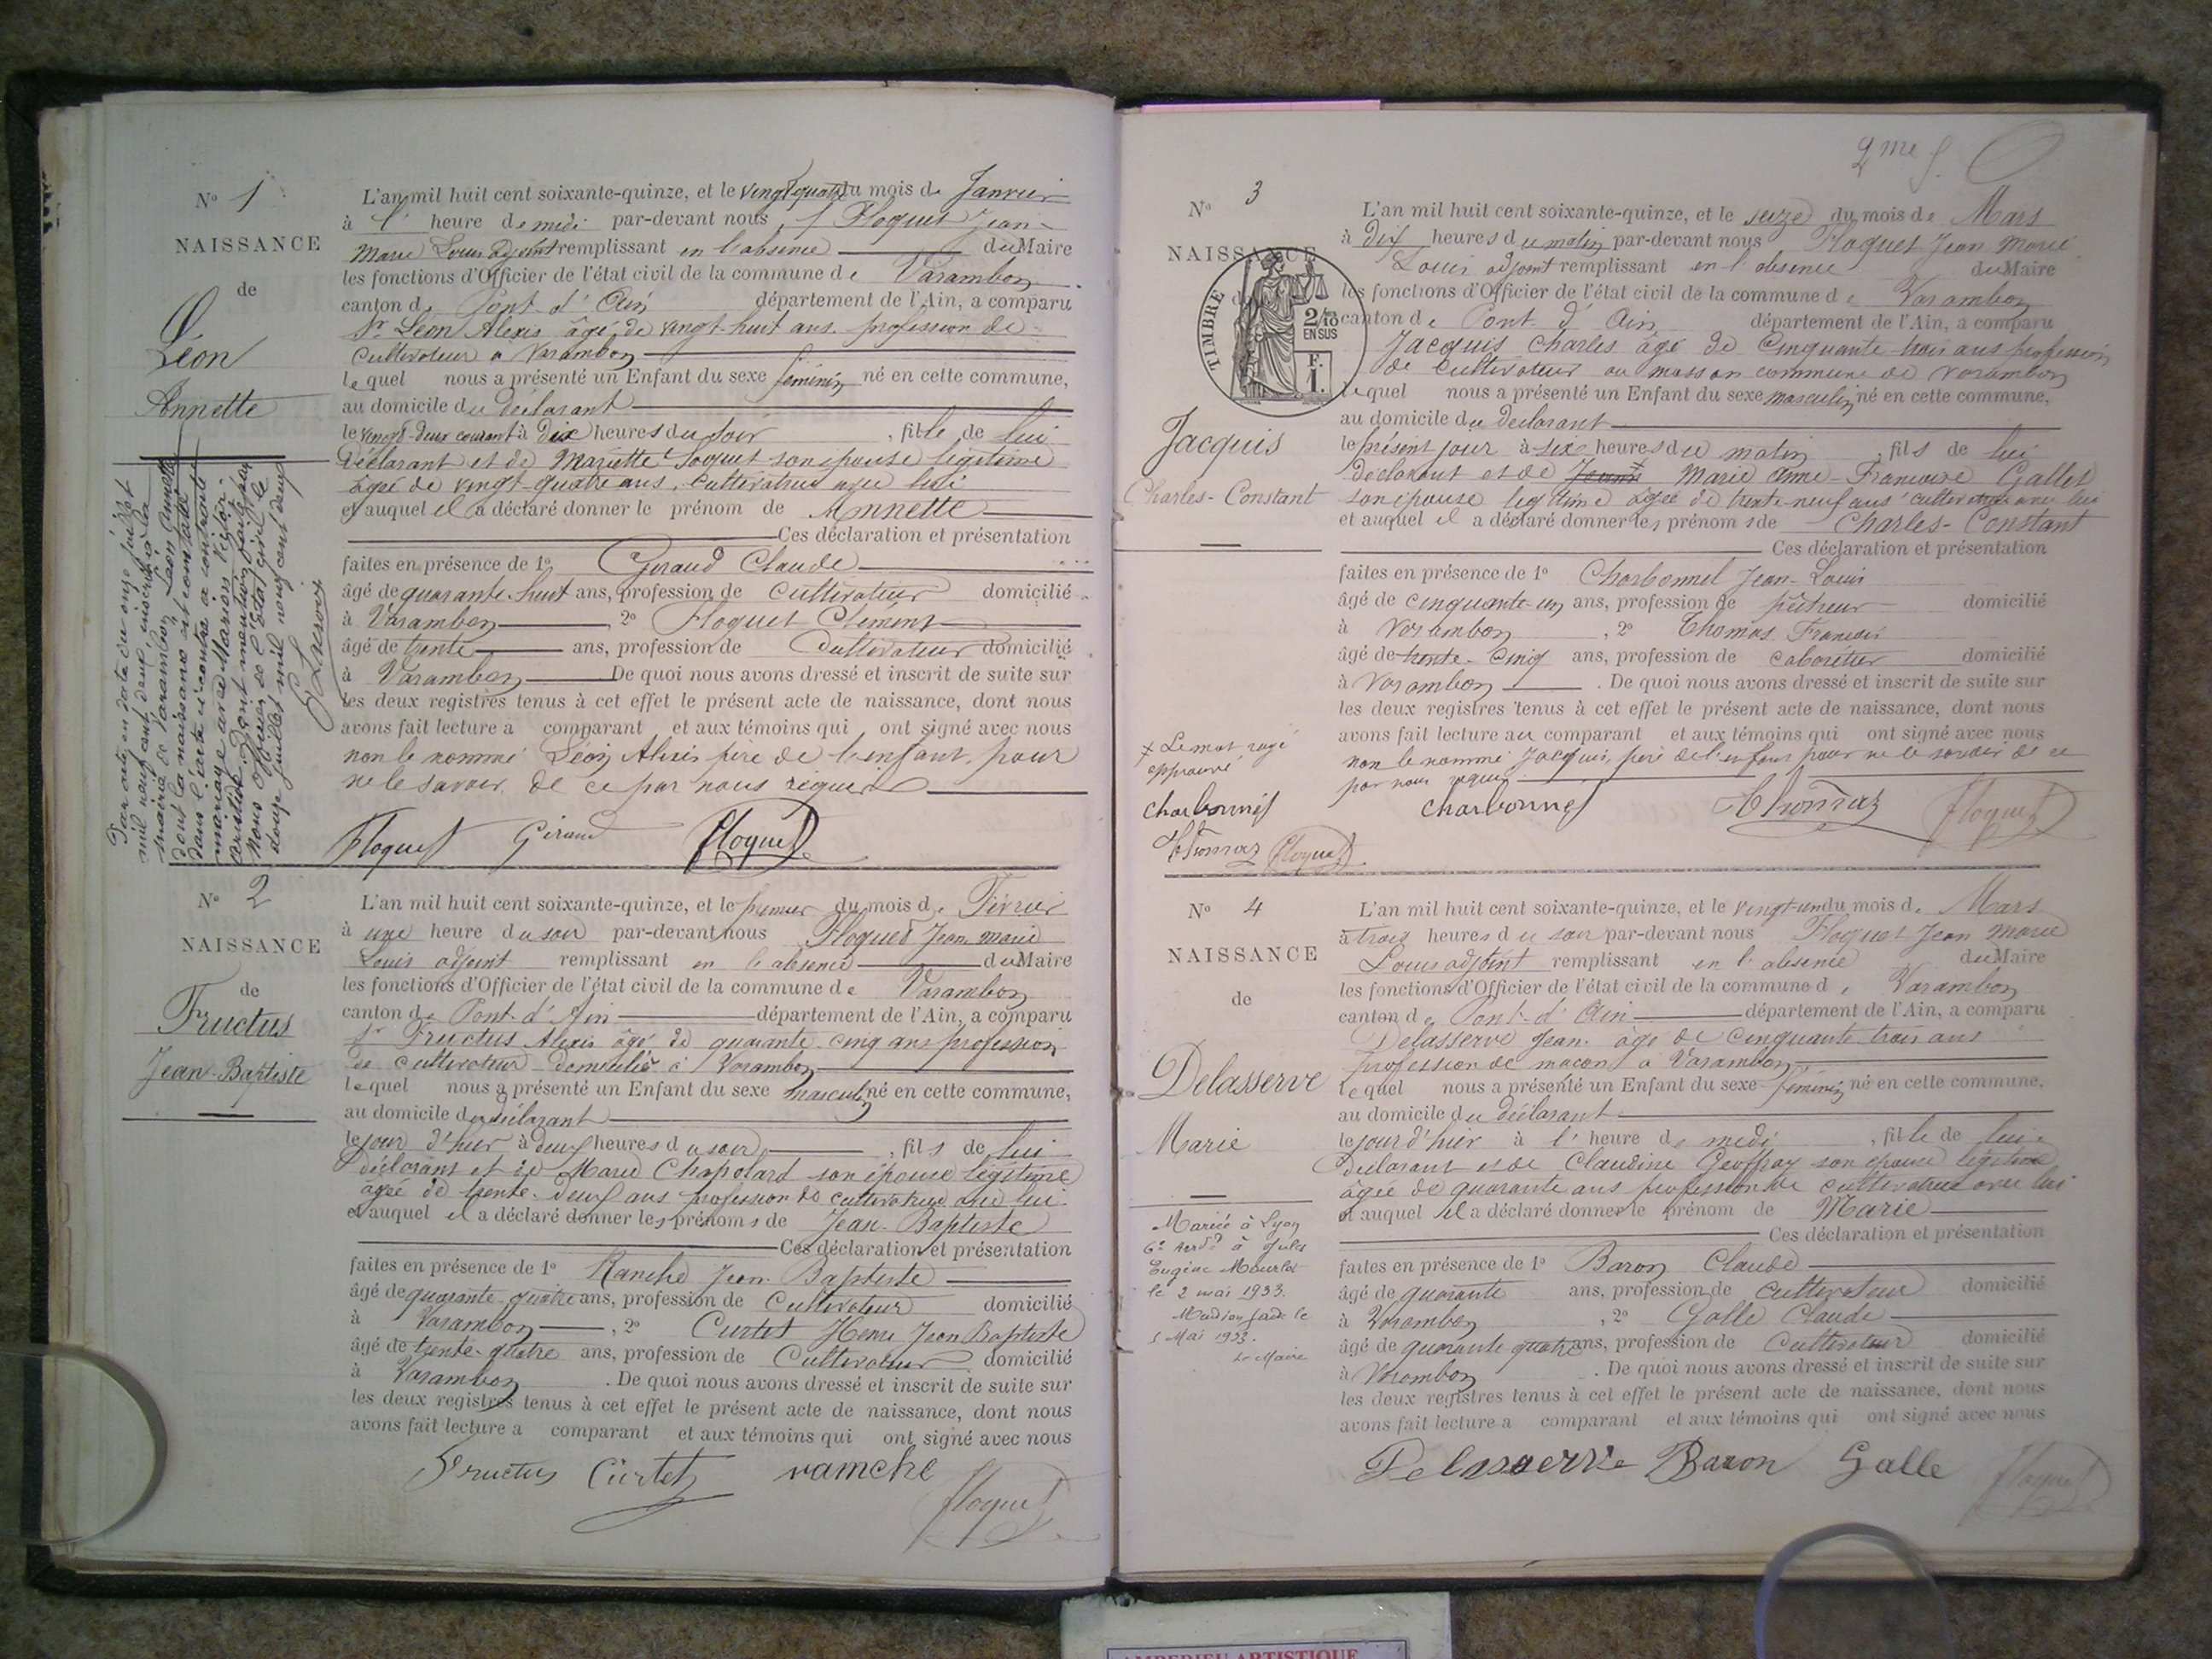 Nº 1
NAISSANCE
de
Léon
Annette
L'an mil huit cent soixante-quinze, et le vingt quatre du mois de Janvier
à l' heure de midi par-devant nous Floquet Jean
Marie Louis adjoint remplissant en l'absence du Maire
les fonctions d'Officier de l'état civil de la commune de Varambon
canton de Pont-d'Ain département de l'Ain, a comparu
Sr Léon Alexis âgé de vingt-huit ans profession de
cultivateur à Varambon
lequel nous a présenté un Enfant du sexe féminin né en cette commune,
au domicile du déclarant
le vingt-deux courant à dix heures du soir, fille de lui
déclarant et de Mariette Joquet son épouse légitime
âgée de vingt-quatre ans, cultivatrice avec lui
et auquel il a déclaré donner le prénom de Annette
Ces déclaration et présentation
faites en présence de 1º Giraud Claude
âgé de quarante-huit ans, profession de cultivateur domicilié
à Varambon, 2º Floquet Clément
âgé de trente ans, profession de Cultivateur domicilié
à Varambon De quoi nous avons dressé et inscrit de suite sur
les deux registres tenus à cet effet le présent acte de naissance, dont nous
avons fait lecture a comparant et aux témoins qui ont signé avec nous
non le nommé Léon Alexis père de l'enfant pour
ne le savoir de ce par nous requis
Floquet Giraud Floquet
Par acte en date du onze juillet
mil neuf cent deux inscrit à la
mairie de Varambon Léon Annette
dont la naissance est constatée
dans l'acte ci-contre a contracté
mariage avec Marion Victor
Aristide. Dont mention faite par
Nous officier de l'Etat civil le
douze juillet mil neuf cent deux
Nº 2
NAISSANCE
de
Fructus
Jean-Baptiste
L'an mil huit cent soixante-quinze, et le premier du mois de Février
à une heure du soir par-devant nous Floquet Jean Marie
Louis adjoint remplissant en l'absence du Maire
les fonctions d'Officier de l'état civil de la commune de Varambon
canton de Pont-d'Ain département de l'Ain, a comparu
Sr Fructus Alexis âgé de quarante-cinq ans profession
de cultivateur domicilié à Varambon
lequel nous a présenté un Enfant du sexe masculin né en cette commune,
au domicile du déclarant
le jour d'hier à deux heures du soir, fils de lui
déclarant et de Marie Chapolard son épouse légitime
âgée de trente-deux ans profession de cultivatrice avec lui
et auquel il a déclaré donner les prénoms de Jean-Baptiste
Ces déclaration et présentation
faites en présence de 1º Ranche Jean Baptiste
âgé de quarante-quatre ans, profession de Cultivateur domicilié
à Varambon, 2º Curtet Henri Jean Baptiste
âgé de trente-quatre ans, profession de Cultivateur domicilié
à Varambon. De quoi nous avons dressé et inscrit de suite sur
les deux registres tenus à cet effet le présent acte de naissance, dont nous
avons fait lecture a comparant et aux témoins qui ont signé avec nous
Fructus Curtet ranche
Floquet
2me f.
Nº 3
NAISSANCE
TIMBRE
2/10
EN SUS
F.
1.
Jacquis
Charles-Constant
L'an mil huit cent soixante-quinze, et le seize du mois de Mars
à dix heures du matin par-devant nous Floquet Jean Marie
Louis adjoint remplissant en l'absence du Maire
les fonctions d'Officier de l'état civil de la commune de Varambon
canton de Pont-d'Ain département de l'Ain, a comparu
Jacquis Charles âgé de Cinquante-trois ans profession
de Cultivateur ou masson commune de Varambon
lequel nous a présenté un Enfant du sexe masculin né en cette commune,
au domicile du déclarant
le présent jour à six heures du matin, fils de lui
déclarant et de Marie Anne-Francoise Gallet
son épouse légitime âgée de trente-neuf ans cultivatrice avec lui
et auquel il a déclaré donner les prénoms de Charles-Constant
Ces déclaration et présentation
faites en présence de 1º Charbonnel Jean-Louis
âgé de cinquante-un ans, profession de pêcheur domicilié
à Varambon, 2º Thomas Francois
âgé de trente-cinq ans, profession de cabaretier domicilié
à Varambon. De quoi nous avons dressé et inscrit de suite sur
les deux registres tenus à cet effet le présent acte de naissance, dont nous
avons fait lecture au comparant et aux témoins qui ont signé avec nous
non le nommé Jacquis, père de l'enfant pour ne le savoir de ce
par nous requis
charbonnel Thomas Floquet
+ Le mot rayé
approuvé
charbonnel
Thomas Floquet
Nº 4
NAISSANCE
de
Delasserve
Marie
L'an mil huit cent soixante-quinze, et le vingt-un du mois de Mars
à trois heures du soir par-devant nous Floquet Jean Marie
Louis adjoint remplissant en l'absence du Maire
les fonctions d'Officier de l'état civil de la commune de Varambon
canton de Pont-d'Ain département de l'Ain, a comparu
Delasserve Jean âgé de cinquante-trois ans
profession de macon à Varambon
lequel nous a présenté un Enfant du sexe féminin né en cette commune,
au domicile du déclarant
le jour d'hier à l'heure de midi, fille de lui
déclarant et de Claudine Geoffray son épouse légitime
âgée de quarante ans profession de cultivatrice avec lui
et auquel il a déclaré donner le prénom de Marie
Ces déclaration et présentation
faites en présence de 1º Baron Claude
âgé de quarante ans, profession de cultivateur domicilié
à Varambon, 2º Galle Claude
âgé de quarante quatre ans, profession de Cultivateur domicilié
à Varambon. De quoi nous avons dressé et inscrit de suite sur
les deux registres tenus à cet effet le présent acte de naissance, dont nous
avons fait lecture a comparant et aux témoins qui ont signé avec nous
Delasserve Baron Galle Floquet
Mariée à Lyon
6e Arrdt à Jules
Eugène
le 2 mai 1933.
le
5 Mai 1933.
Le Maire
AMBERIEU ARTISTIQUE